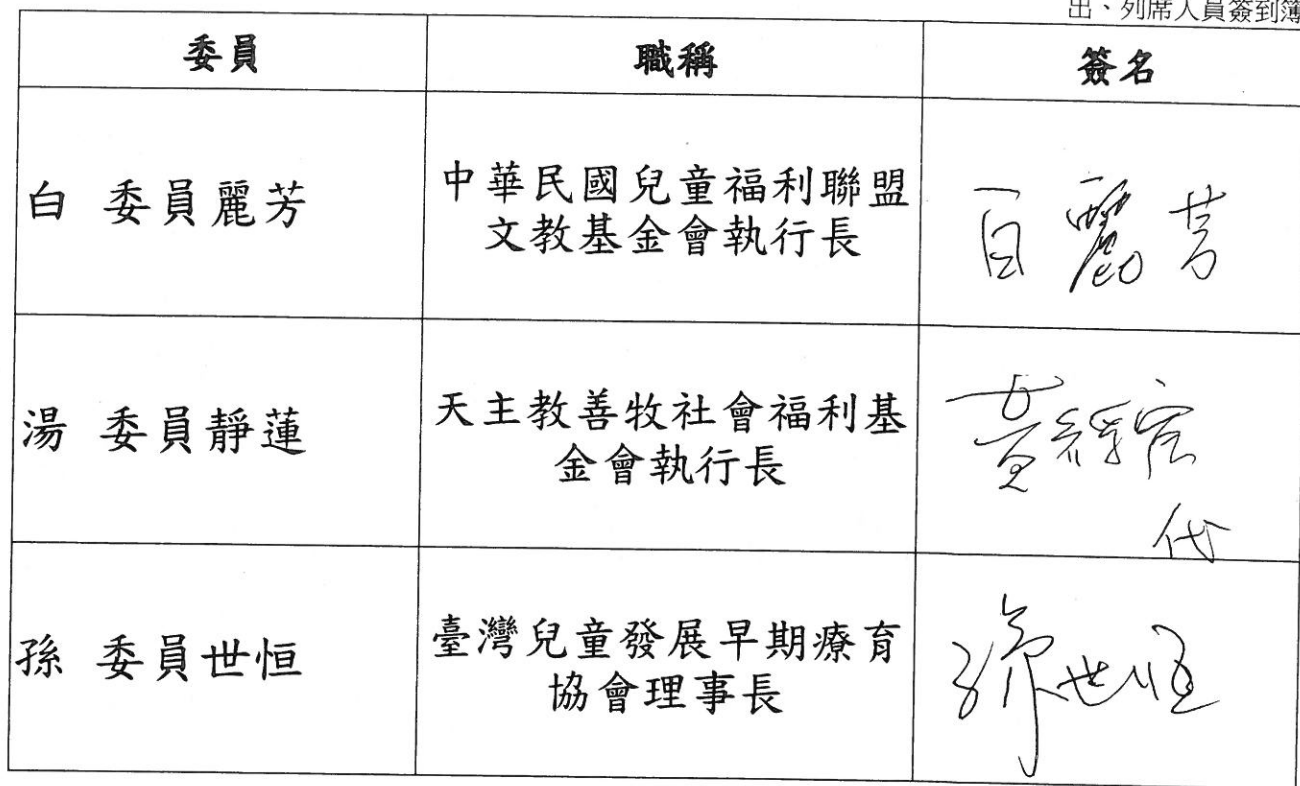 出、列席人員簽到簿
委員 職稱 簽名
白 委員麗芳
中華民國兒童福利聯盟
文教基金會執行長
白麗芳
湯 委員靜蓮
天主教善牧社會福利基
金會執行長
黃
代
孫 委員世恒
臺灣兒童發展早期療育
協會理事長
孫世恒